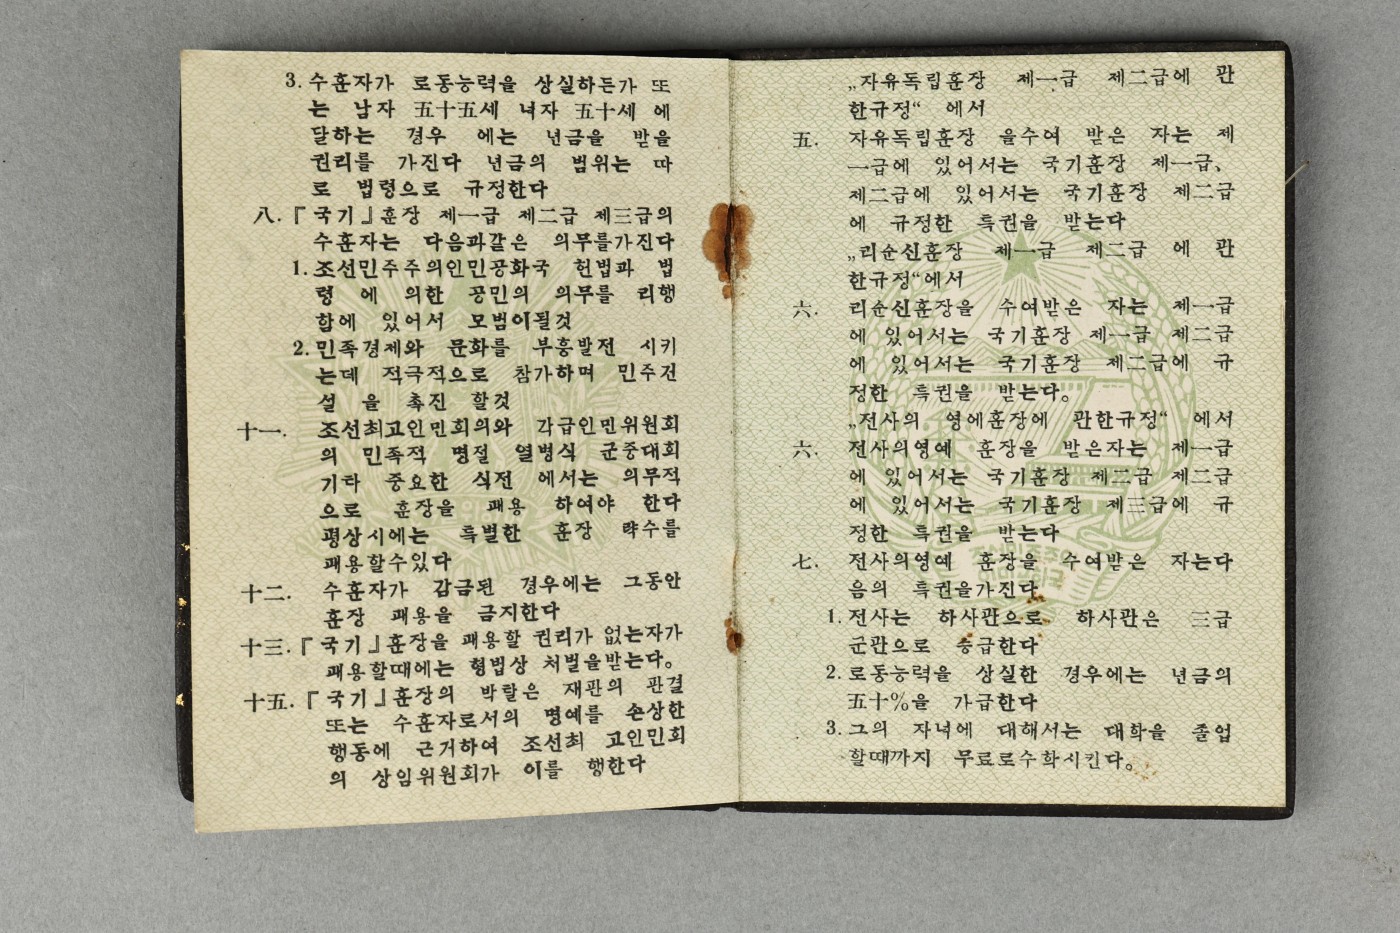 3. 수훈자가 로동능력을 상실하든가 또
는 남자 五十五세 녀자 五十세 에
달하는 경우 에는 년금을 받을
권리를 가진다 년금의 범위는 따
로 법령으로 규정한다
八. 『국기』훈장 제一급 제二급 제三급의
수훈자는 다음과같은 의무를가진다
1. 조선민주주의인민공화국 헌법과 법
령 에 의한 공민의 의무를 리행
함에 있어서 모범이될것
2. 민족경제와 문화를 부흥발전 시키
는데 적극적으로 참가하며 민주건
설 을 촉진 할것
十一. 조선최고인민회의와 각급인민위원회
의 민족적 명절 열병식 군중대회
기타 중요한 식전 에서는 의무적
으로 훈장을 패용 하여야 한다
평상시에는 특별한 훈장 략수를
패용할수있다
十二. 수훈자가 감금된 경우에는 그동안
훈장 패용을 금지한다
十三. 『국기』훈장을 패용할 권리가 없는자가
패용할때에는 형법상 처벌을받는다。
十五. 『국기』훈장의 박탈은 재판의 판결
또는 수훈자로서의 명예를 손상한
행동에 근거하여 조선최 고인민회
의 상임위원회가 이를 행한다
„자유독립훈장 제一급 제二급에 관
한규정“ 에서
五. 자유독립훈장 을수여 받은 자는 제
一급에 있어서는 국기훈장 제一급、
제二급에 있어서는 국기훈장 제二급
에 규정한 특권을 받는다
„리순신훈장 제一급 제二급 에 관
한규정“에서
六. 리순신훈장을 수여받은 자는 제一급
에 있어서는 국기훈장 제一급 제二급
에 있어서는 국기훈장 제二급에 규
정한 특권을 받는다。
„전사의 영예훈장에 관한규정“ 에서
六. 전사의영예 훈장을 받은자는 제一급
에 있어서는 국기훈장 제二급 제二급
에 있어서는 국기훈장 제三급에 규
정한 특권을 받는다
七. 전사의영예 훈장을 수여받은 자는다
음의 특권을가진다
1. 전사는 하사관으로 하사관은 三급
군관으로 승급한다
2. 로동능력을 상실한 경우에는 년금의
五十%을 가급한다
3. 그의 자녀에 대해서는 대학을 졸업
할때까지 무료로수학시킨다。